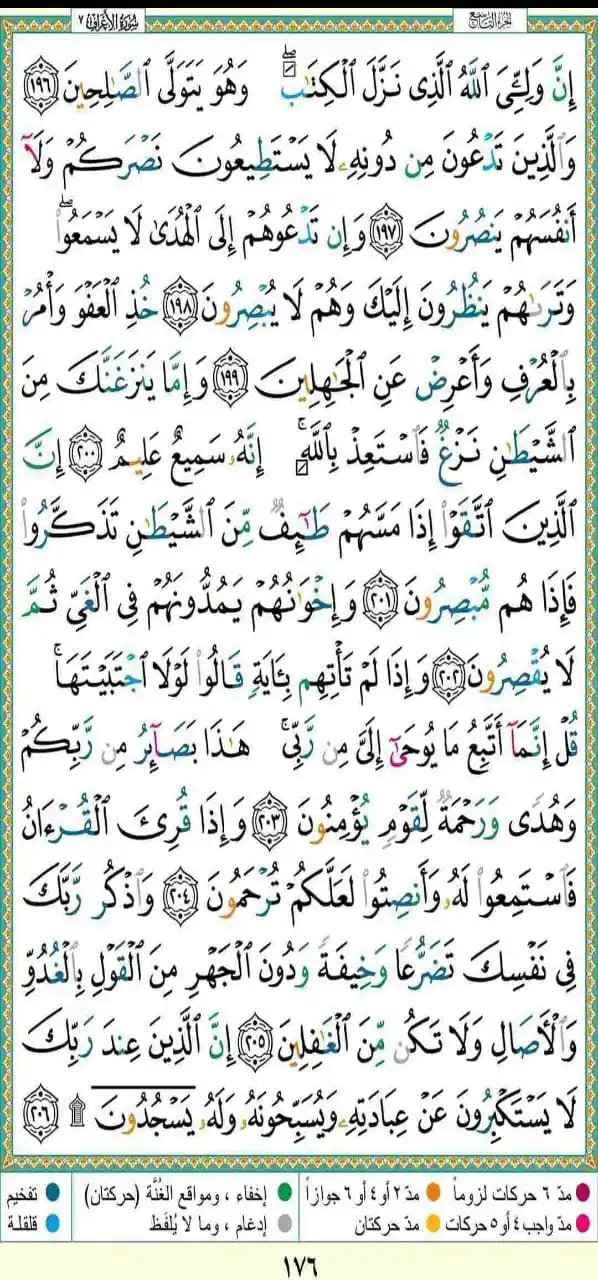 الجزء التاسع
سورة الأعراف ٧
إِنَّ وَلِـِّۧيَ ٱللَّهُ ٱلَّذِي نَزَّلَ ٱلْكِتَـٰبَ ۖ وَهُوَ يَتَوَلَّى ٱلصَّـٰلِحِينَ ١٩٦
وَٱلَّذِينَ تَدْعُونَ مِن دُونِهِۦ لَا يَسْتَطِيعُونَ نَصْرَكُمْ وَلَآ
أَنفُسَهُمْ يَنصُرُونَ ١٩٧ وَإِن تَدْعُوهُمْ إِلَى ٱلْهُدَىٰ لَا يَسْمَعُوا۟ ۖ
وَتَرَىٰهُمْ يَنظُرُونَ إِلَيْكَ وَهُمْ لَا يُبْصِرُونَ ١٩٨ خُذِ ٱلْعَفْوَ وَأْمُرْ
بِٱلْعُرْفِ وَأَعْرِضْ عَنِ ٱلْجَـٰهِلِينَ ١٩٩ وَإِمَّا يَنزَغَنَّكَ مِنَ
ٱلشَّيْطَـٰنِ نَزْغٌ فَٱسْتَعِذْ بِٱللَّهِ ۚ إِنَّهُۥ سَمِيعٌ عَلِيمٌ ٢٠٠ إِنَّ
ٱلَّذِينَ ٱتَّقَوْا۟ إِذَا مَسَّهُمْ طَـٰٓئِفٌ مِّنَ ٱلشَّيْطَـٰنِ تَذَكَّرُوا۟
فَإِذَا هُم مُّبْصِرُونَ ٢٠١ وَإِخْوَٰنُهُمْ يَمُدُّونَهُمْ فِي ٱلْغَيِّ ثُمَّ
لَا يُقْصِرُونَ ٢٠٢ وَإِذَا لَمْ تَأْتِهِم بِـَٔايَةٍ قَالُوا۟ لَوْلَا ٱجْتَبَيْتَهَا ۚ
قُلْ إِنَّمَآ أَتَّبِعُ مَا يُوحَىٰٓ إِلَيَّ مِن رَّبِّي ۚ هَـٰذَا بَصَآئِرُ مِن رَّبِّكُمْ
وَهُدًى وَرَحْمَةٌ لِّقَوْمٍ يُؤْمِنُونَ ٢٠٣ وَإِذَا قُرِئَ ٱلْقُرْءَانُ
فَٱسْتَمِعُوا۟ لَهُۥ وَأَنصِتُوا۟ لَعَلَّكُمْ تُرْحَمُونَ ٢٠٤ وَٱذْكُر رَّبَّكَ
فِي نَفْسِكَ تَضَرُّعًا وَخِيفَةً وَدُونَ ٱلْجَهْرِ مِنَ ٱلْقَوْلِ بِٱلْغُدُوِّ
وَٱلْـَٔاصَالِ وَلَا تَكُن مِّنَ ٱلْغَـٰفِلِينَ ٢٠٥ إِنَّ ٱلَّذِينَ عِندَ رَبِّكَ
لَا يَسْتَكْبِرُونَ عَنْ عِبَادَتِهِۦ وَيُسَبِّحُونَهُۥ وَلَهُۥ يَسْجُدُونَ ۩ ٢٠٦
مدّ ٦ حركات لزوماً مدّ ٢ أو ٤ أو ٦ جوازاً إخفاء ، ومواقع الغُنَّة (حركتان) تفخيم
مدّ واجب ٤ أو ٥ حركات مدّ حركتان إدغام ، وما لا يُلفَظ قلقلة
١٧٦